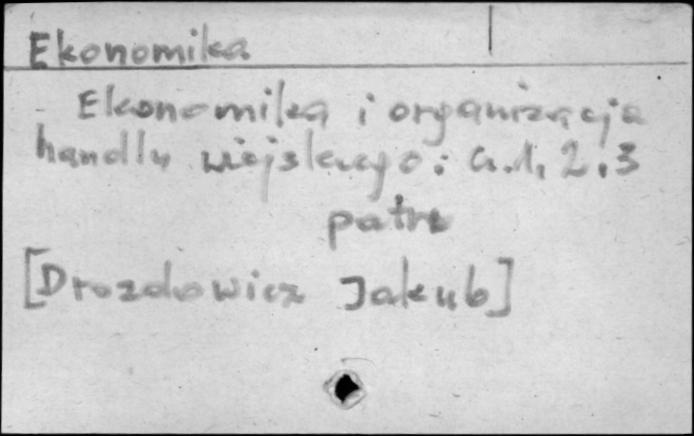 Ekonomika
Ekonomika i organizacja
handlu wiejskiego: cz.1, 2, 3
patrz
[Drozdowicz Jakub]